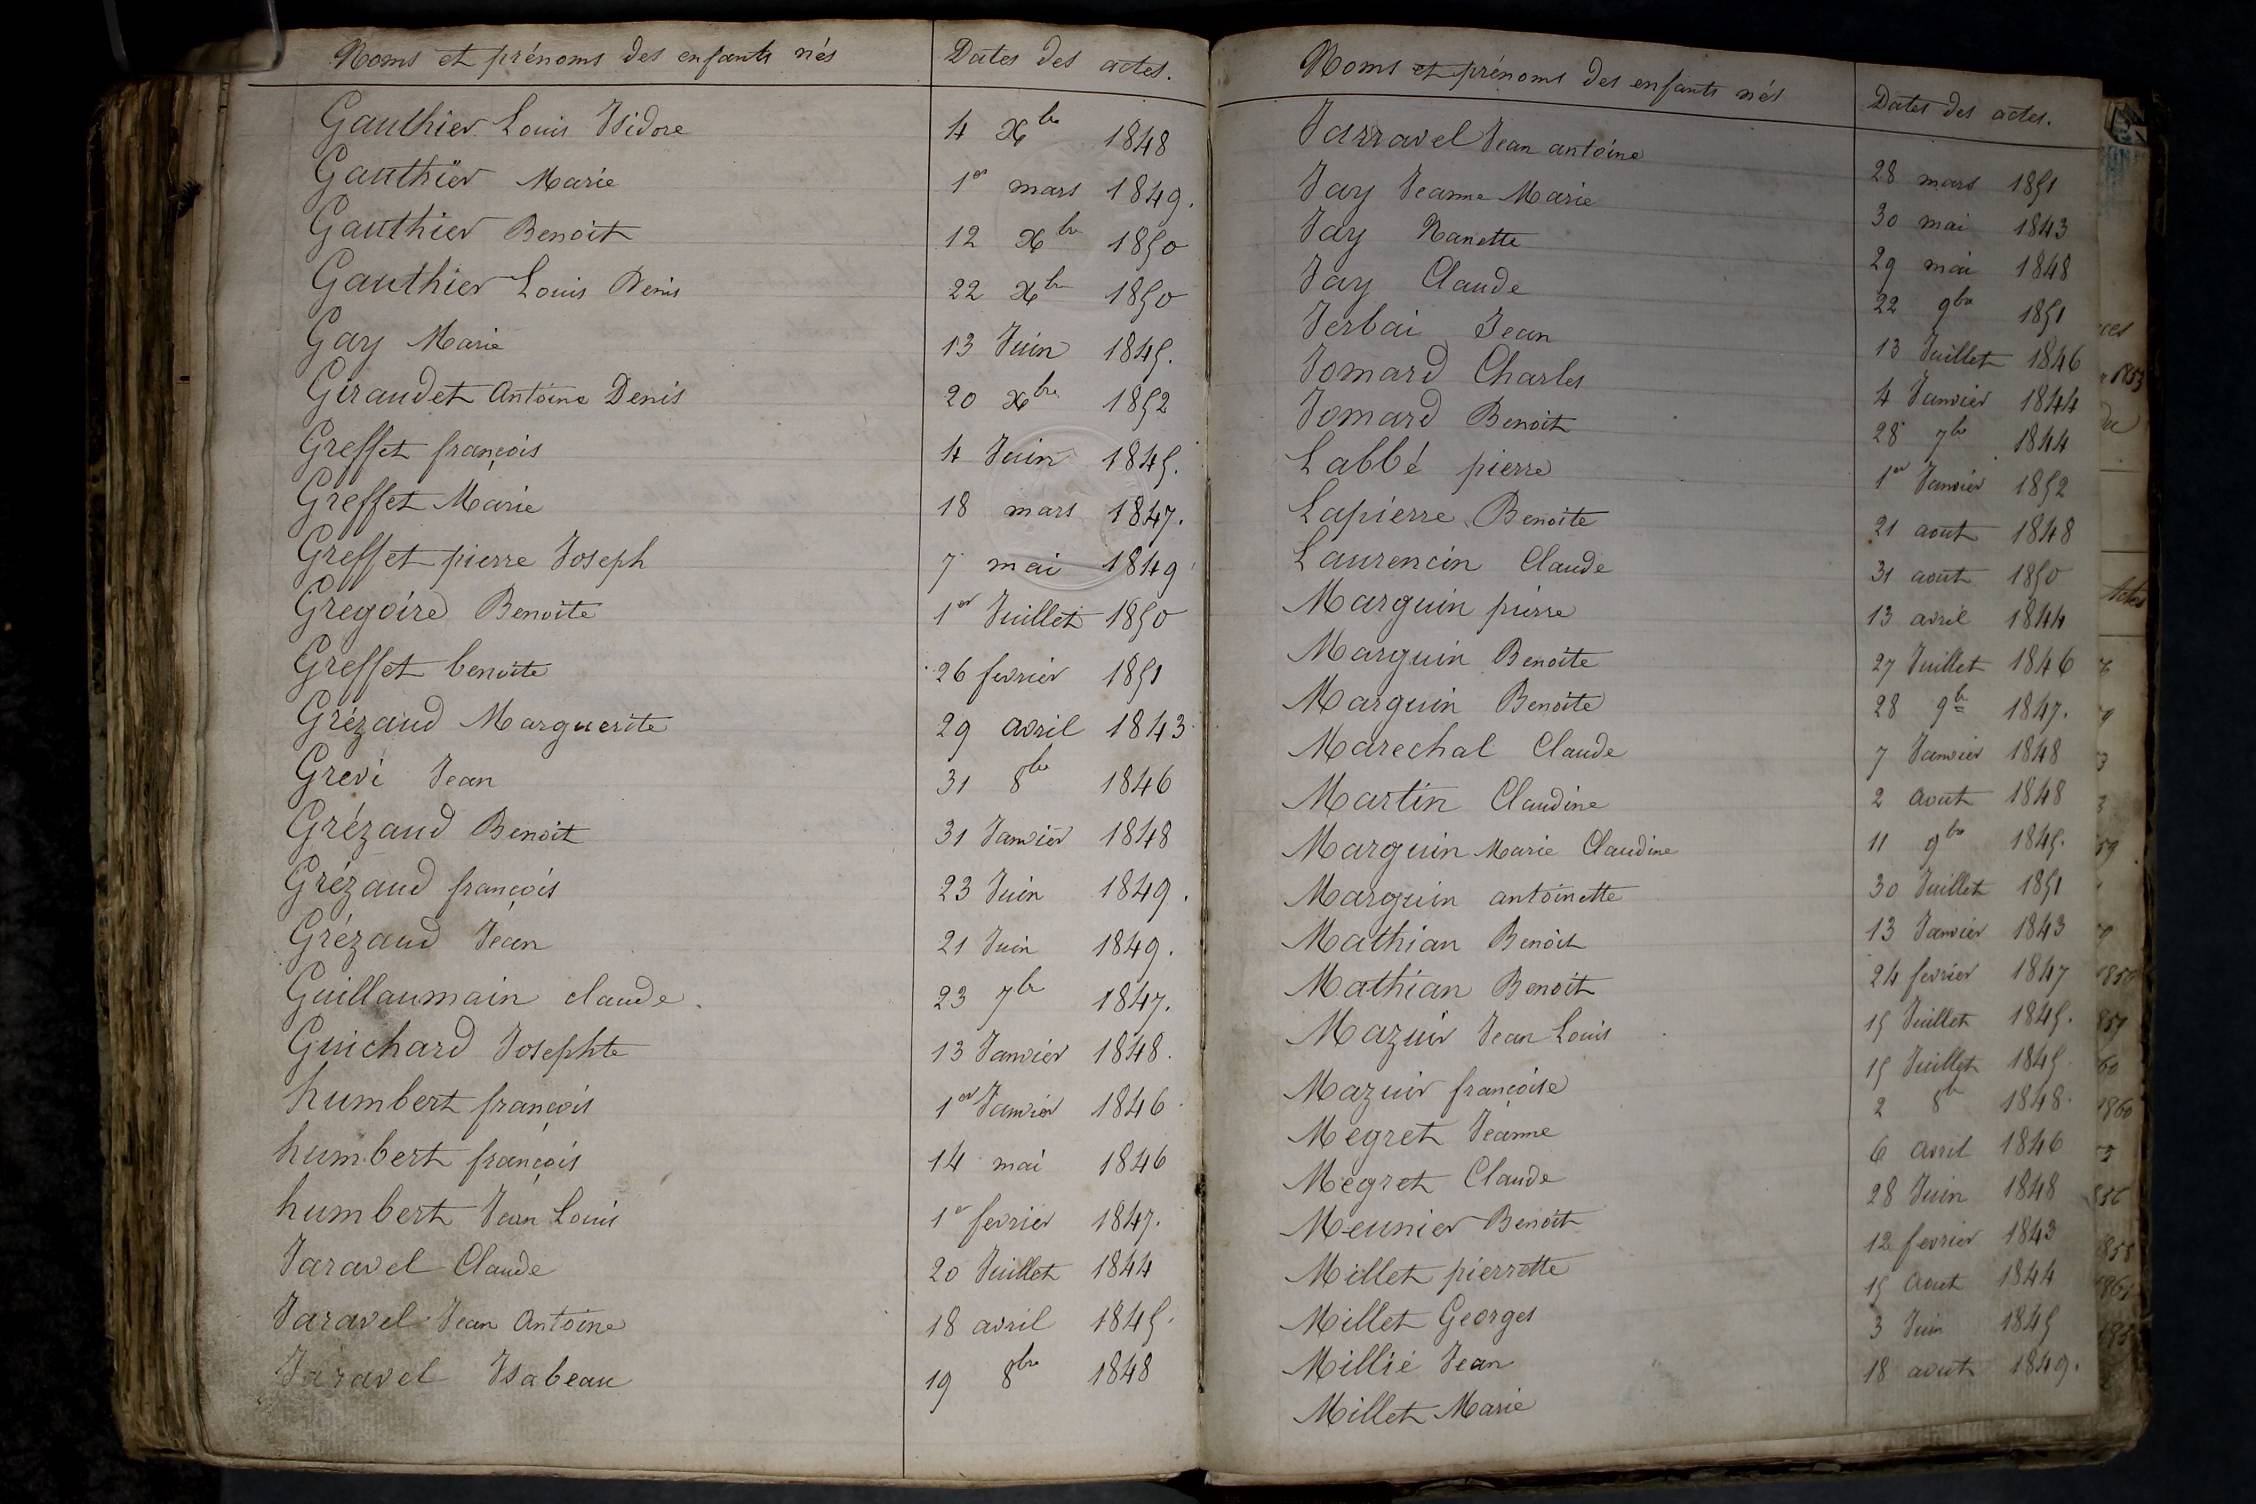 Noms et prénoms des enfants nés Dates des actes.
Gauthier Louis Isidore 4 Xbre 1848
Gauthier Marie 1er mars 1849.
Gauthier Benoit 12 Xbre 1850
Gauthier Louis Denis 22 Xbre 1850
Gay Marie 13 Juin 1845.
Giraudet Antoine Denis 20 Xbre 1852
Greffet françois 4 Juin 1845.
Greffet Marie 18 mars 1847.
Greffet pierre Joseph 7 mai 1849
Gregoire Benoite 1er Juillet 1850
Greffet benoite 26 fevrier 1851
Grézaud Marguerite 29 avril 1843
Grevi Jean 31 8bre 1846
Grézaud Benoit 31 Janvier 1848
Grézaud françois 23 Juin 1849.
Grézaud Jean 21 Juin 1849.
Guillaumain claude. 23 7bre 1847.
Guichard Josephte 13 Janvier 1848.
humbert françois 1er Janvier 1846
humbert françois 14 mai 1846
humbert Jean Louis 1er fevrier 1847.
Jaravel Claude 20 Juillet 1844
Jaravel Jean Antoine 18 avril 1845.
Jaravel Isabeau 19 8bre 1848
Noms et prénoms des enfants nés Dates des actes.
Jarravel Jean antoine 28 mars 1851
Jay Jeanne Marie 30 mai 1843
Jay Nanette 29 mai 1848
Jay Claude 22 9bre 1851
Jerbai Jean 13 Juillet 1846
Jomard Charles 4 Janvier 1844
Jomard Benoit 28 7bre 1844
Labbé pierre 1er Janvier 1852
Lapierre Benoite 21 aout 1848
Laurencin Claude 31 aout 1850
Marguin pierre 13 avril 1844
Marguin Benoite 27 Juillet 1846
Marguin Benoite 28 9bre 1847.
Marechal Claude 7 Janvier 1848
Martin Claudine 2 aout 1848
Marguin Marie Claudine 11 9bre 1845.
Marguin antoinette 30 Juillet 1851
Mathian Benoit 13 Janvier 1843
Mathian Benoit 24 fevrier 1847
Mazuir Jean Louis 15 Juillet 1845.
Mazuir françoise 15 Juillet 1845.
Megret Jeanne 2 8bre 1848.
Megret Claude 6 avril 1846
Meunier Benoit 28 Juin 1848
Millet pierrette 12 fevrier 1843
Millet Georges 15 Aout 1844
Millié Jean 3 Juin 1845
Millet Marie 18 aout 1849.